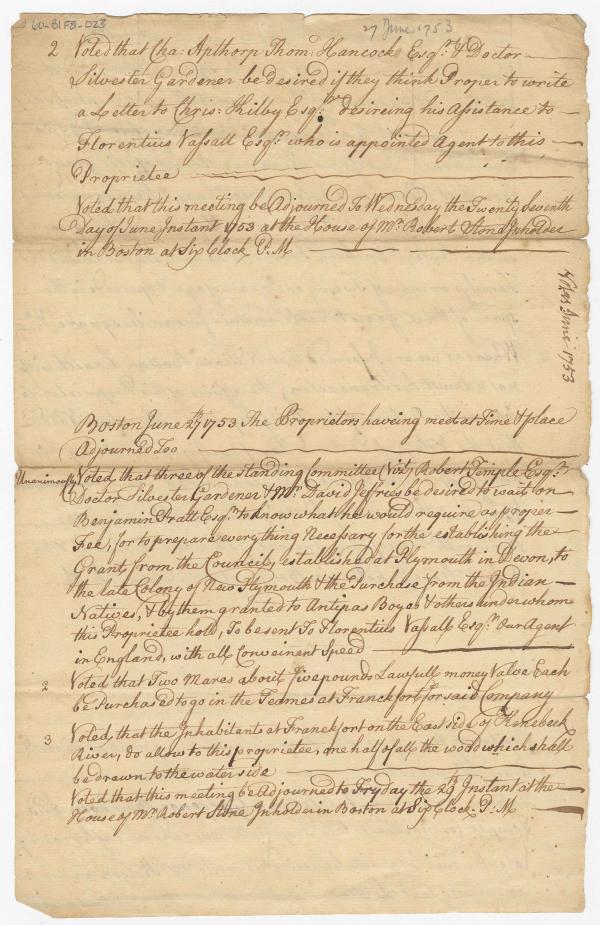 60-B1F8-023
27 June 1753
2 Voted that Cha: Apthorp Thomˢ Hancock Esqʳˢ & Doctor
Silvester Gardener be desired if they think Proper to write
a Letter to Chris: Kilby Esqʳ desireing his Assistance to
Florentius Vassall Esqʳ who is appointed Agent to this
Proprietee
Voted that this meeting be Adjourned To Wednesday the Twenty Seventh
Day of June Instant 1753 at the House of Mʳ Robert Stone Inholder
in Boston at Six Clock P.M
Votes June 1753
Boston June 27ᵗʰ 1753 The Proprietors haveing meet at Time & place
Adjourned Too
Unanimously Voted that three of the Standing Committee (Vizᵗ) Robert Temple Esqʳ
Doctor Silvester Gardener & Mʳ David Jeffries be desired to wait on
Benjamin Pratt Esqʳ to know what he would require as proper
Fee, for to prepare everything Necessary for the establishing the
Grant from the Councils, established at Plymouth in Devon, to
the late Colony of New Plymouth & the Purchase from the Indian
Natives, & by them granted to Antipas Boyes & others under whom
this Proprietee hold, To be sent To Florentius Vassall Esqʳ Our Agent
in England, with all Conveinent Speed
2 Voted that Two Mares about five pounds Lawfull money Value Each
be Purchased to go in the Teames at Franckfort for said Company
3 Voted, that the Inhabitants at Franckfort on the East side of Kenebeck
River, do allow to this proprietee, one half of all the wood which shall
be drawn to the water side
Voted that this meeting be Adjourned to Fryday the 29ᵗʰ Instant at the
House of Mʳ Robert Stone Inholder in Boston at Six Clock P.M